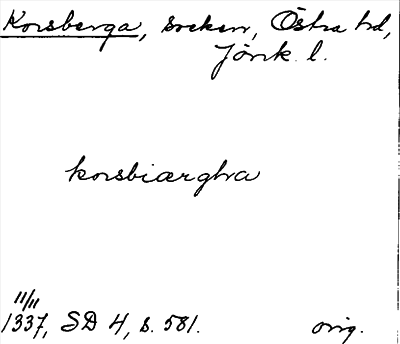 Korsberga, socken, Östra hd,
Jönk. l.
korsbiærghra
11/11
1337, SD 4, s. 581. orig.